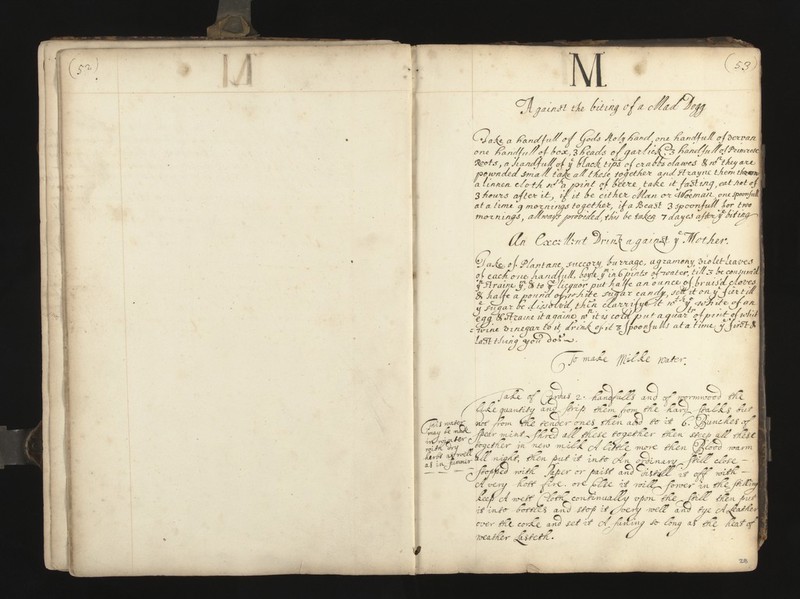 (52)
M
M
(53)
Against the biting of a Mad Dogg
Take a handfull of Gods Holy hand, one handfull of
one handfull of box, 3 heads of garlick, handfull of Primrose
Roots, a handfull of yͤ black tips of crabbs clawes & wⁿ they are
pownded small take all these together and strayne them throw
a linnen cloth wᵗʰ a point of beere, take it fasting, eat not of
3 hours after it, if it be either Man or Woeman, one spoonfull
at a time 9 mornings together, if a Beast 3 spoonfull for two
mornings, allways provided, this be taken 7 dayes after yͤ biting
An Excellent Drink against yͤ Mother.
Take of Plantane, succory, burrage, agramony, violet leaves
of each one handfull, boyle yᵐ in 6 pints of water, till 3 be consum'd
yⁿ straine yᵐ, & to yͤ licquor put halfe an ounce of bruis'd cloves
& halfe a pound of white sugar candy, sett it on yͤ fire till
yͤ sugar be dissolv'd, then clarrifye it wᵗʰ yͤ white of an
egg & straine it againe, wⁿ it is cold put a quarᵗᵉʳ of point of whit
wine vinegar to it, drink of it 3 spoonfulls at a time yͤ first &
last thing you doe.
To make Milke water.
Take of Cardus 2 handfulls and of wormwood the
like quantity and strip them from the hard stalks but
not from the tender ones then add to it 6 Bunches of
spear mint shred all these together then steep all these
together in new milk A little more then Blood warm
all night, then put it into An ordinary still close
stopped with Paper or paist and distill it off with
A very hott fire. or Else it will sower in the stilling
keep A wett Cloth continually upon the still then put
it into bottles and stop it very well and tye A Leather
over the corke and set it A suning so long as the heat of
weather lasteth.
This water
may be made
in winter
with dry
herbs as well
as in summer
28